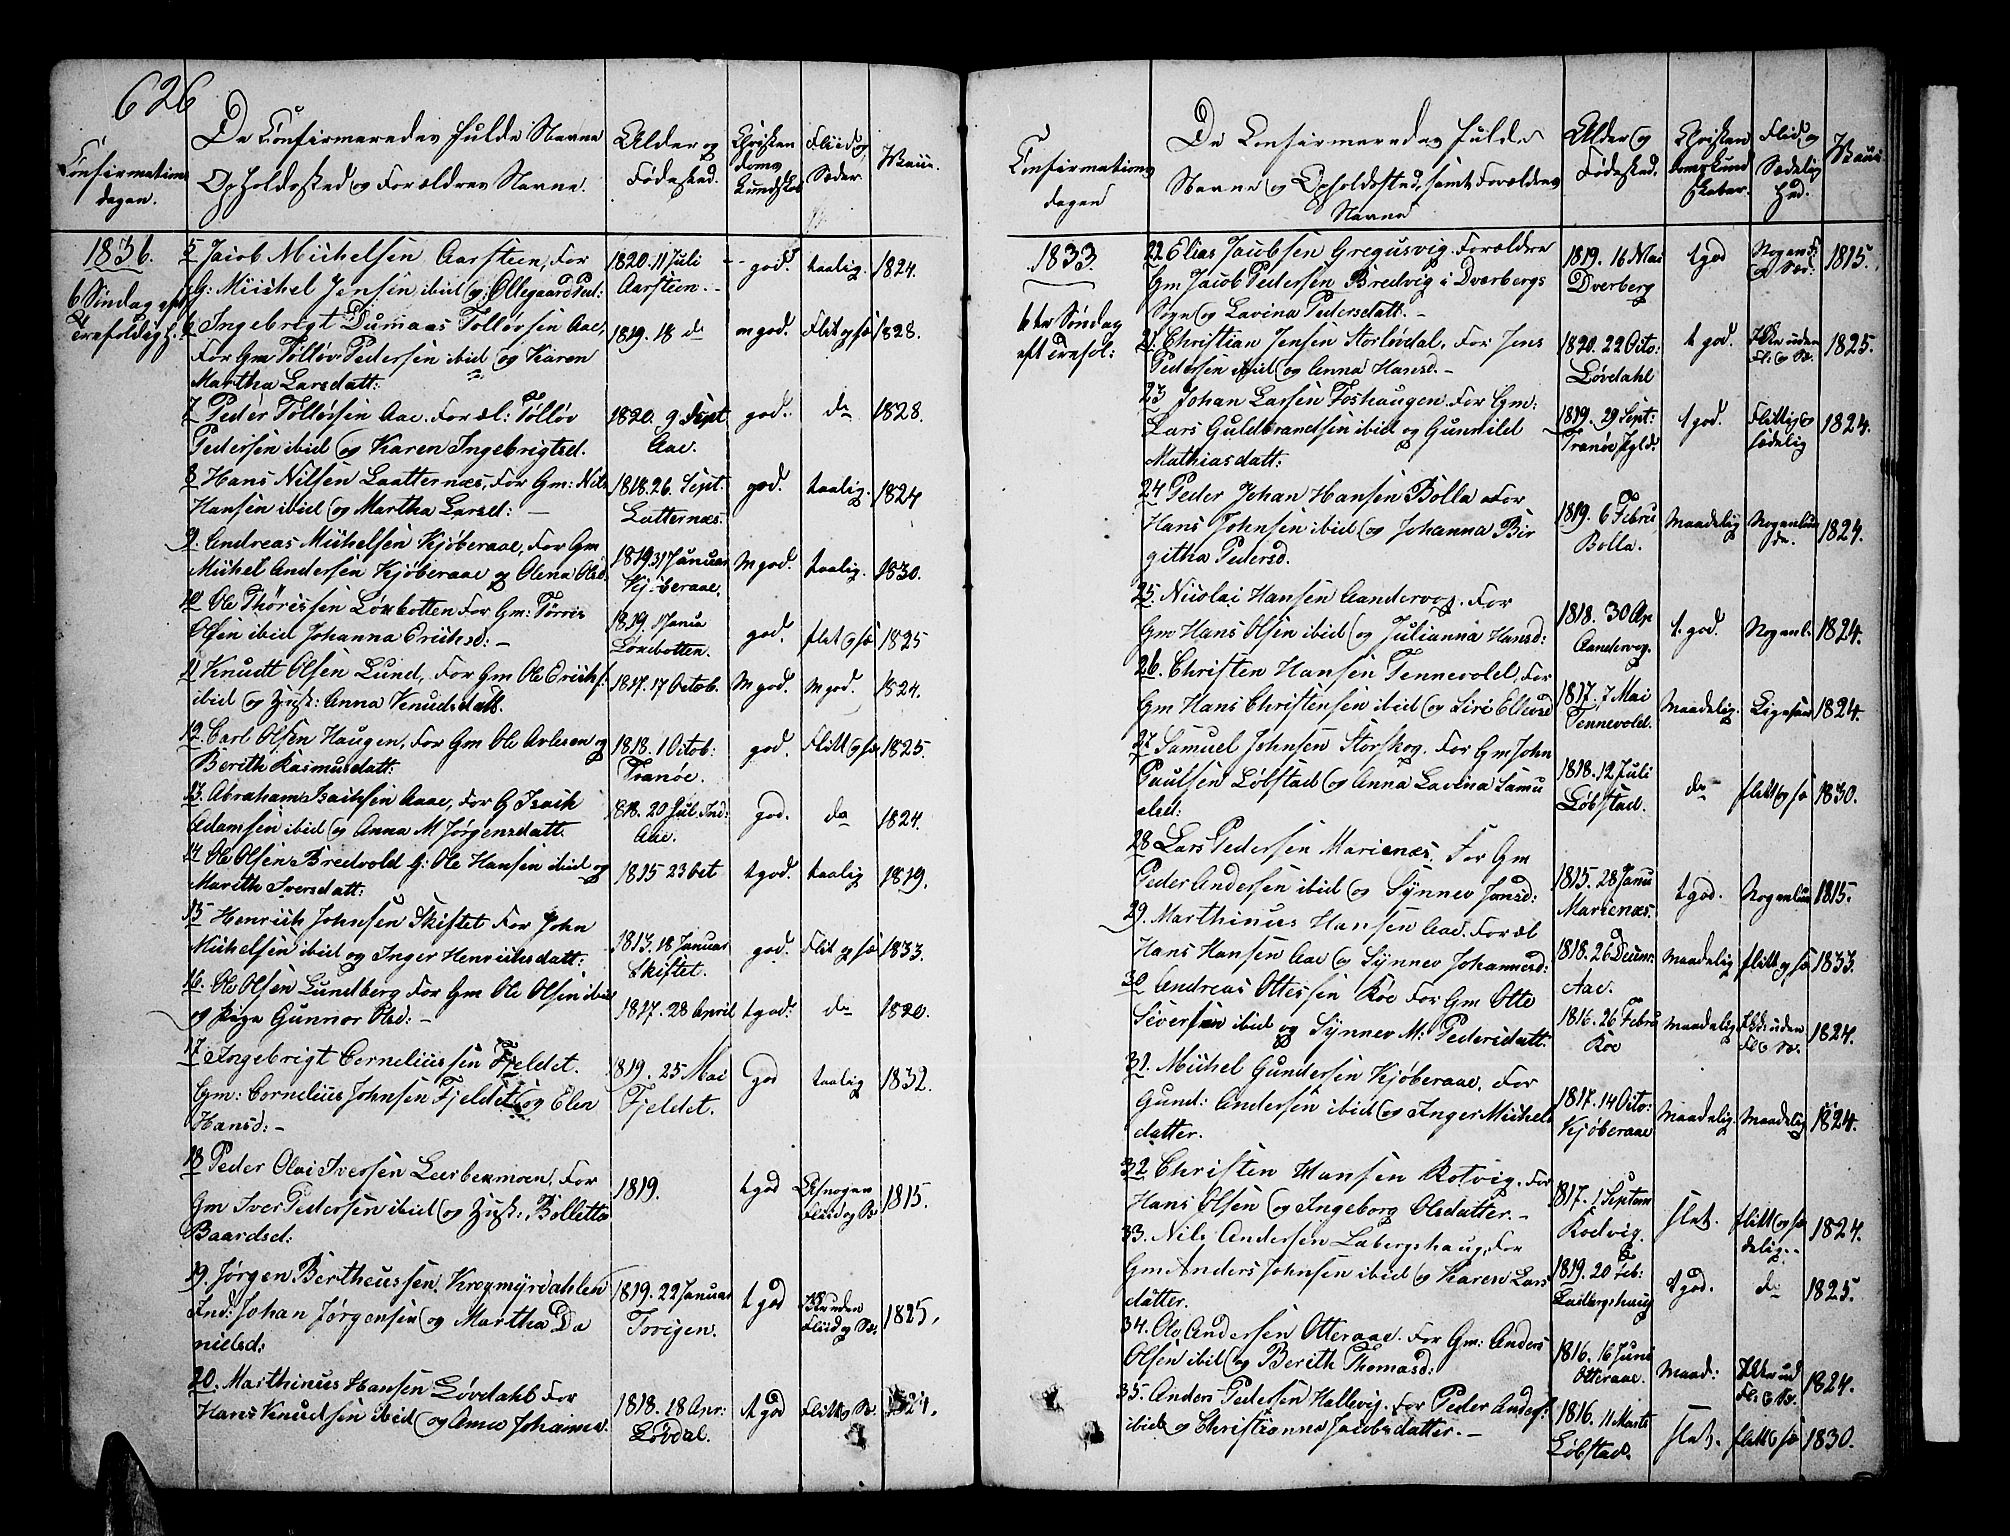 626
Confirmations
dagen.
De Confirmeredes fulde Navne
Opholdssted og Forældres Navne.
Alder og
Fødested.
Christen
doms
Kundskab
Fliid og
Sæder.
Vacci.
1836.
6 Søndag eft
Trefoldigh.
5 Jacob Michelsen Aarsteen, For
G: Michel Jensen ibid og Ollegaard Ped:
1820. 11 Juli
Aarsteen.
god.
taalig.
1824.
6 Ingebrigt Dumaas Tolløvsen Aae,
For Gm Tølløv Pedersen ibid og Karen
Martha Larsdatt:
1819. 18 do
m god.
Flit og sæ
1828.
7 Peder Tølløvsen Aae. Foræl: Tølløv
Pedersen ibid og Karen Ingebrigtsd.
1820. 9 Sept
Aae.
god.
do
1828.
8 Hans Nilsen Laatternæs, For Gm: Nils
Hansen ibid og Martha Larsd: -
1818. 26. Sept.
Latternæs.
god.
taalig.
1824
9 Andreas Michelsen Kjøberaae, For Gm
Michel Andersen Kjøberaae og Olena Olsd.
1819. 31 Januar
Kjøberaae.
M god.
taalig.
1830.
10 Ole Thørissen Løxebotten For Gm: Tørris
Olsen ibid Johanna Erichsd: -
1819. 1 Janu
Løxebotten.
god.
flit og sæ
1825
11 Knudt Olsen Lund, For Gm Ole Erichs:
ibid og Hust: Anna Knudsdatt.
1817. 17 Octob.
M god.
M god.
1824.
12. Carl Olsen Haugen, For Gm Ole Arlesen og
Berith Rasmusdatt:
1818. 1 Octob:
Tranøe.
god.
Flitt og sæ
1825.
13. Abraham Isachsen Aaae, For G Isach
Adamsen ibid og Anna M Jørgensdatt.
1818. 20 Jul. Ind:
Aae.
god.
do
1824.
14 Ole Olsen Bredvold G: Ole Hansen ibid og
Marith Iversdatt:
1815 23 Oct
t god.
taalig
1819.
15 Henrich Johnsen Skiftet For John
Michelsen ibid og Inger Henrichsdatt:
1813. 18 Januar
Skiftet.
god.
Flit og sæ
1833.
16. Ole Olsen Lundberg For Gm Ole Olsen ibid
og Pige Gunnor Olsd: -
1817. 28 April
t god:
do
1820.
17 Ingebrigt Corneliussen Fjeldet.
Gm: Cornelius Johnsen Fjeldet og Elen
Hansd: -
1819. 25 Mai
Fjeldet.
God
taalig
1832.
18 Peder Olai Iversen Leerbekmoen, For
Gm Iver Pedersen ibid og Hust:, Bollette
Baardsd:
1819.
t god
Fliid og Sæ
1815.
19. Jørgen Bertheussen Krogmyrdahlen
Ind: Johan Jørgensen og Martha Da
nielsd:
1819. 22 Januar
Torigen.
t god
Ikke uden
Fliid og Sæ.
1825.
20. Marthinus Hansen Løvdahl For
Hans Knudsen ibid og Anne Johannesd.
1818. 18 Apr:
Løvdal.
t god
Flitt og Sæ.
1824.
Confirmations
dagen
De Confirmeredes fulde
Navne og Opholdssted, samt Forældres
Navne
Alder og
Fødested.
Christen
domskund
skaber.
Fliid og
Sædelig
hed.
Vacci.
1833
6te Søndag
eft Trefol:
22 Elias Jacobsen Gregusvig. Forældre
Gm Jacob Pedersen Bredvig i Dverbergs
Sogn og Lavina Pedersdatt. -
1819. 16 Mai
Dverberg
t god
Nogen F:
og Sæ.
1815.
21. Christian Jensen Storløvdal, For: Jens
Pedersen ibid og Anna Hansd. -
1820. 22 Octo:
Løvdahl
t god.
Ikke uden
Fl: og Sæ.
1825.
23 Johan Larsen Foshaugen For Gm:
Lars Guldbrandsen ibid og Gunnild
Mathiasdatt:
1819. 29 Sept:
Tranøe Pgld.
t god.
Flittig og
sædelig
1824.
24 Peder Johan Hansen Bolla For
Hans Johnsen ibid og Johanna Bir
githa Pedersd.
1819. 6 Febru
Bolla.
Maadelig
Nogenlun
de.
1824.
25. Nicolai Hansen Aandervog. For
Gm Hans Olsen ibid og Julianna Hansd:
1818. 30 Ap
Aandervog.
t. god.
Nogenl.
1824.
26. Christen Hansen Tennevold, For
Gm Hans Christensen ibid og Siri Ellevsd
1817. 7 Mai
Tennevold.
Maadelig.
Ligesaa
1824.
27 Samuel Johnsen Storskog. For Gm John
Paulsen Løbstad og Anna Lavina Samu
elsd:
1818. 12 Juli
Løbstad.
do
flitt og sæ
1830.
28 Lars Pedersen Marienæs. For Gm
Peder Andersen ibid og Synnev Jonsd:
1815. 28 Janu
Marienæs.
t god.
Nogenlun
1815.
29. Marthinus Hansen Aae. Foræl
Hans Hansen Aae og Synnev Johannesd:
1818. 26 Decmr.
Aae.
Maadelig
flitt og sæ
1833.
30 Andreas Ottessen Roe For Gm Otte
Siversen ibid og Synnev M: Pedersdatt.
1816. 26 Febru
Roe
maadelig
Ikke uden
Fl: & Sæ.
1824.
31. Michel Gundersen Kjøberaae, For
Gund: Andersen ibid og Inger Michels
datter.
1817. 14 Octo:
Kjøberaae
Maadelig.
Maadelig
1824.
32 Christen Hansen Rotvig. For
Hans Olsen og Ingeborg Olsdatter. -
1817. 1 Septem
Roedvig.
slet.
flitt og sæ
delig. -
1824.
33. Nils Andersen Labergshaug, For
Gm Anders Johnsen ibid og Karen Lars
datter.
1819. 20 Feb:
Labergshaug
t god.
do
1825.
34. Ole Andersen Otteraae. For Gm: Anders
Olsen ibid og Berith Thomasd:
1816. 16 Juni
Otteraae.
Maad:
Ikke ud
Fl: & Sæ.
1824.
35. Anders Pedersen Hallevig. For Peder Anders:
ibid og Christianna Jacobsdatter. -
1816. 11 Marts
Løbstad.
slet.
flitt & sæ
1830.